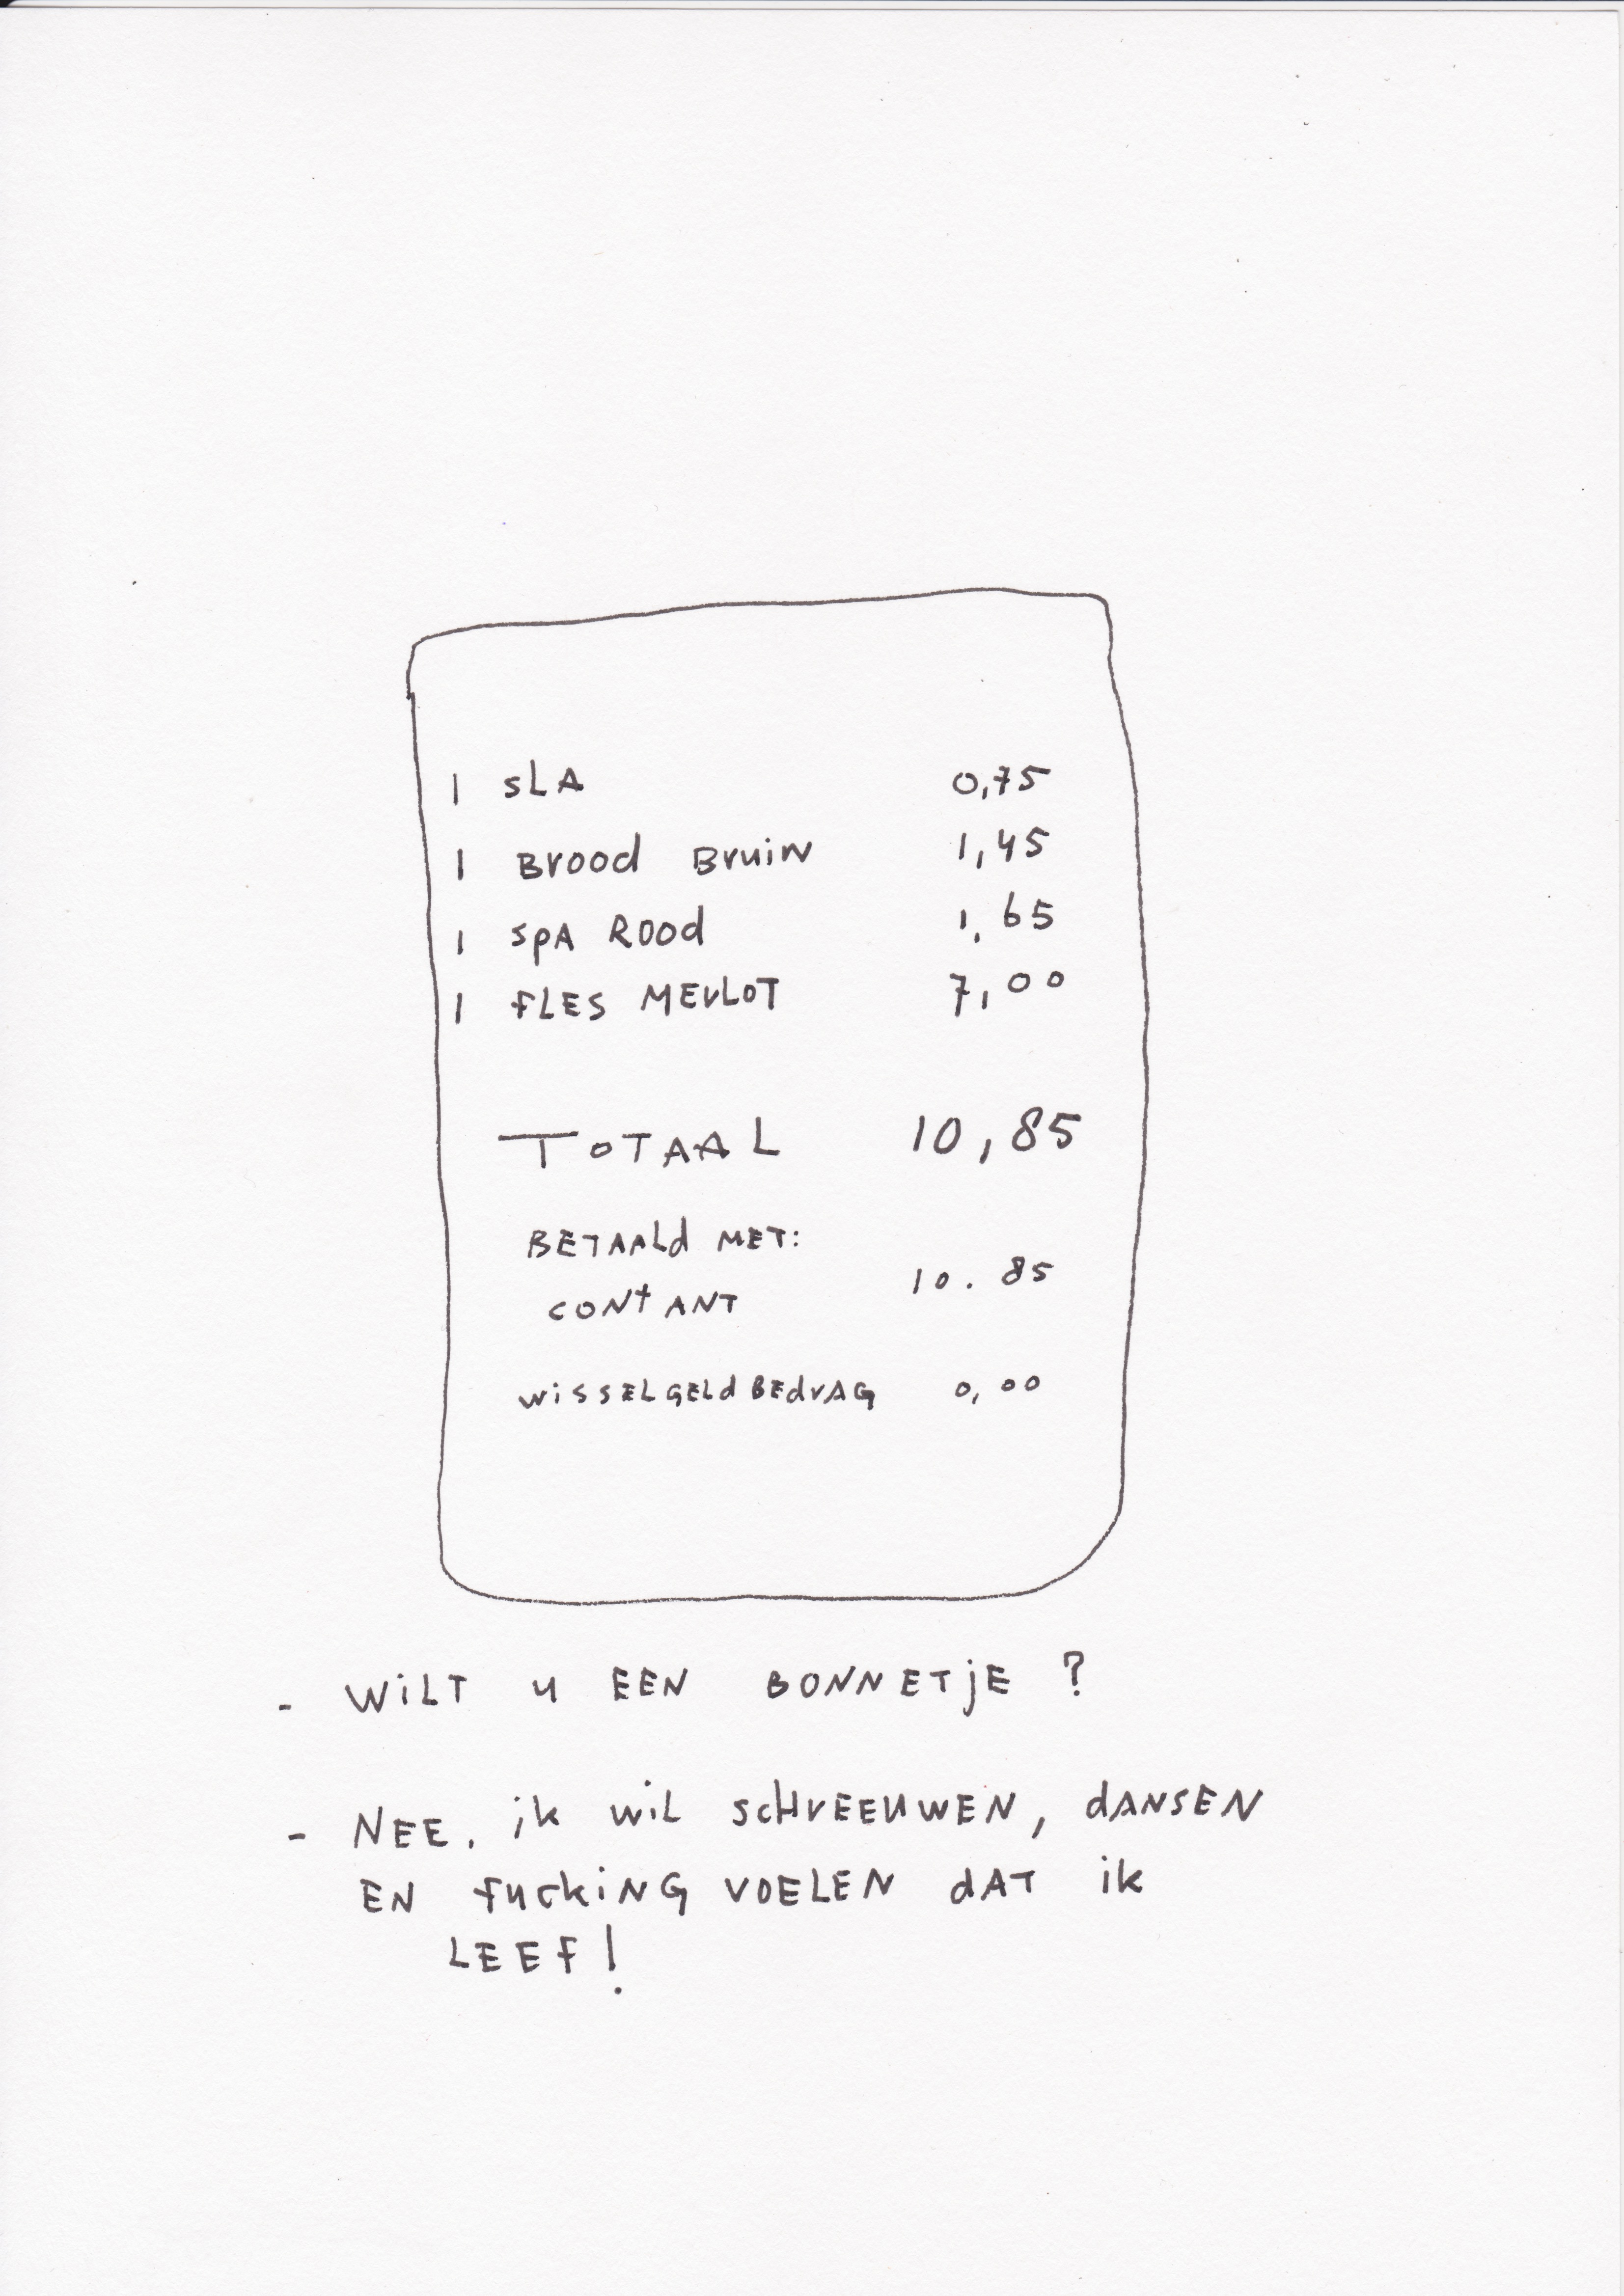 1 SLA 0,75
1 Brood Bruin 1,45
1 SPA Rood 1,65
1 FLES MERLOT 7,00
TOTAAL 10,85
BETAALD MET:
CONTANT 10.85
WISSELGELDBEDRAG 0,00
- WILT U EEN BONNETJE ?
- NEE, ik wil SCHREEUWEN, dANSEN
EN fucking VOELEN dAT ik
LEEF!